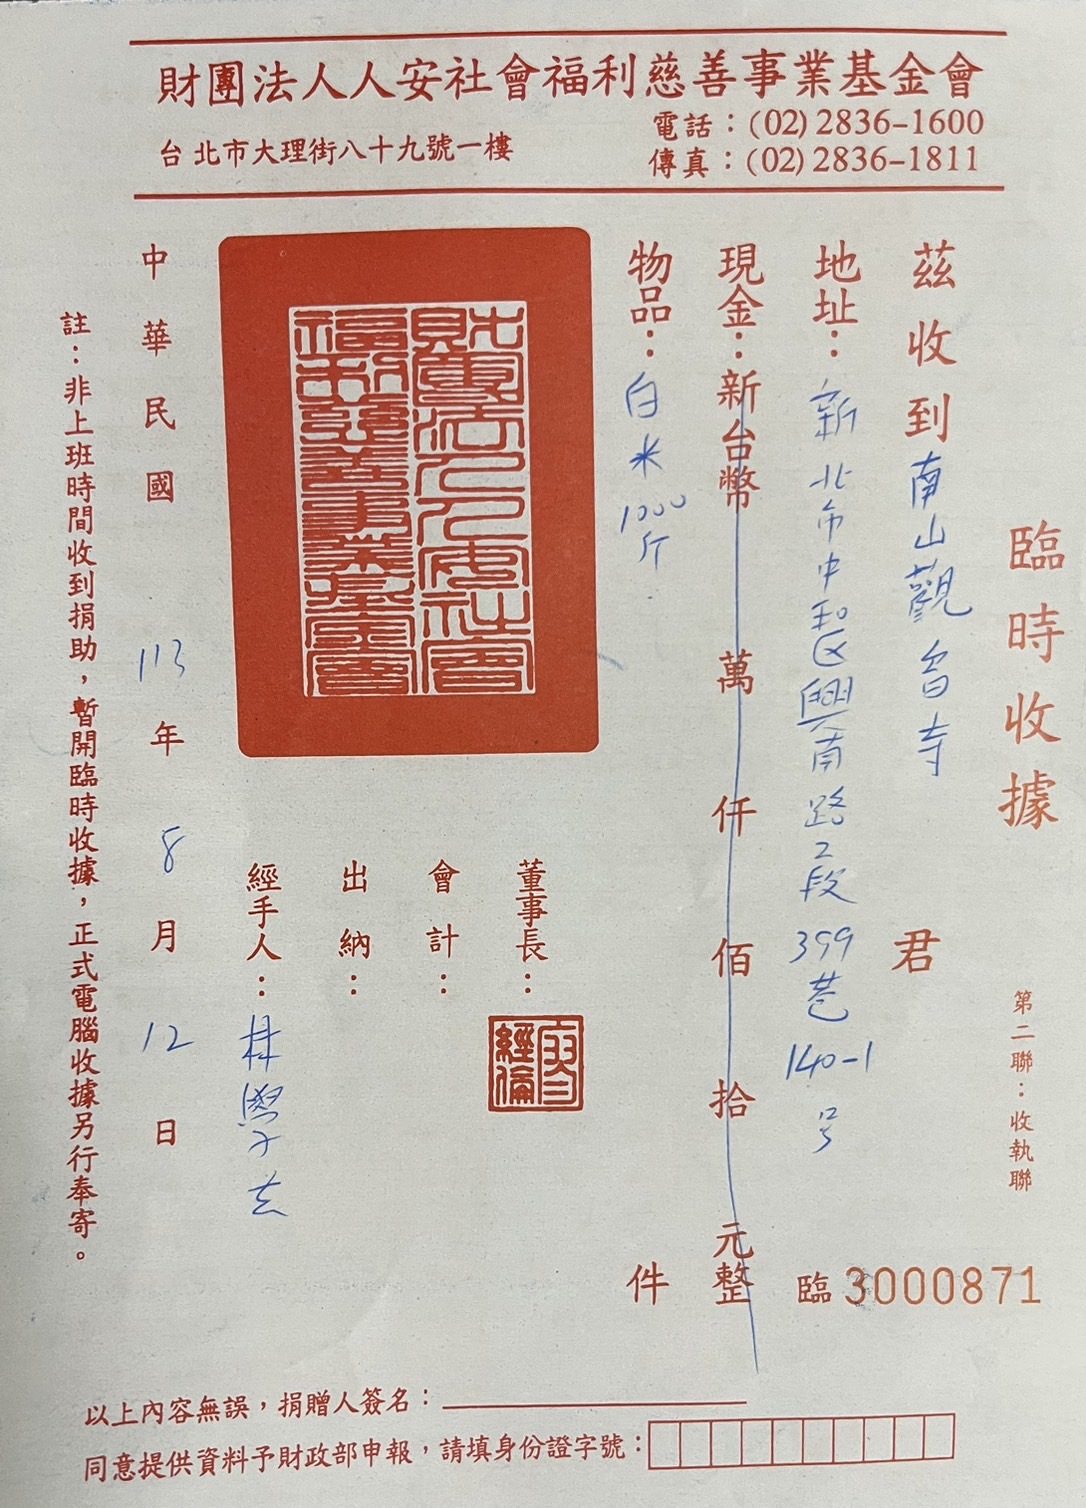 財團法人人安社會福利慈善事業基金會
台北市大理街八十九號一樓
電話：(02) 2836-1600
傳真：(02) 2836-1811
臨時收據
第二聯：收執聯
茲收到南山觀音寺 君
地址：新北市中和区興南路2段399巷140-1号
現金：新台幣 萬 仟 佰 拾 元整
物品：白米1000斤 件
臨 3000871
財團法人人安社會
福利慈善事業基金會
董事長：
會計：
出納：
經手人：林學
中華民國 113 年 8 月 12 日
註：非上班時間收到捐助，暫開臨時收據，正式電腦收據另行奉寄。
以上內容無誤，捐贈人簽名：
同意提供資料予財政部申報，請填身份證字號：